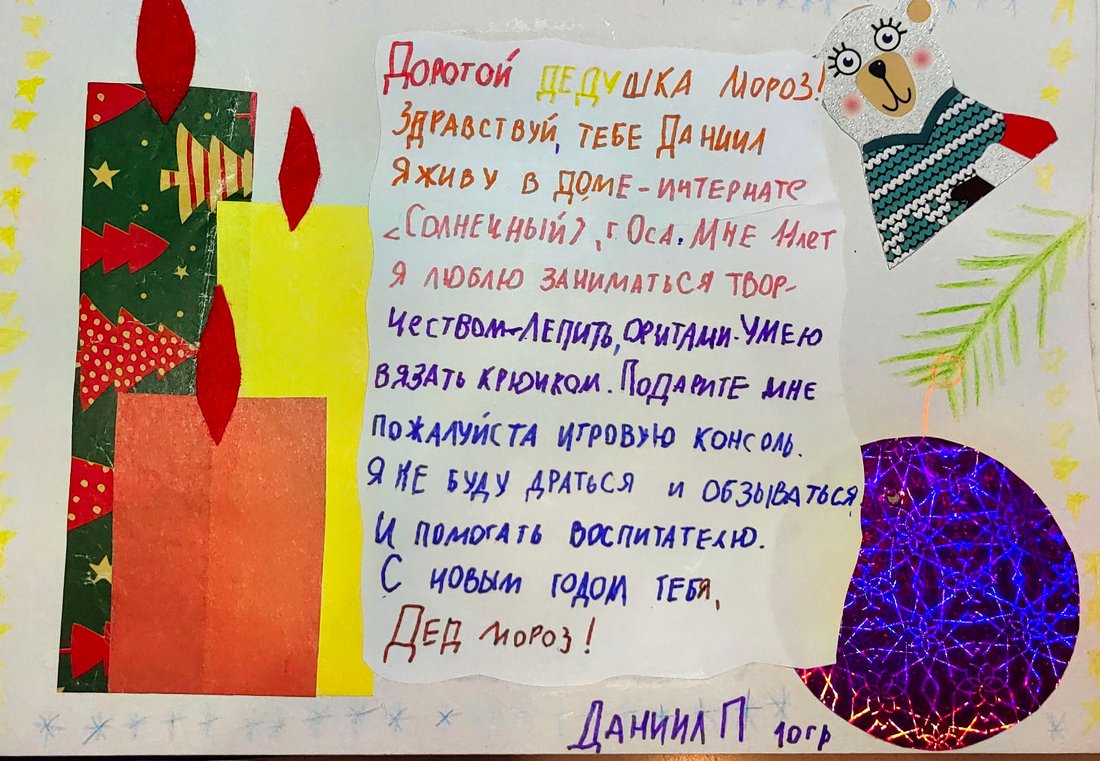 Доротой ДЕДУШКА МОРОЗ!
ЗДРАВСТВУЙ, ТЕБЕ ДАНИИЛ
Я ЖИВУ В ДОМЕ-ИНТЕРНАТЕ
<СОЛНЕЧНЫЙ>, г. Оса. МНЕ 11 лет
Я ЛЮБЛЮ ЗАНИМАТЬСЯ ТВОР-
ЧЕСТВОМ-ЛЕПИТЬ, ОРИТАМИ-УМЕЮ
ВЯЗАТЬ КРЮЧКОМ. ПОДАРИТЕ МНЕ
ПОЖАЛУЙСТА ИГРОВУЮ КОНСОЛЬ.
Я НЕ БУДУ ДРАТЬСЯ И ОБЗЫВАТЬСЯ,
И ПОМОГАТЬ ВОСПИТАТЕЛЮ.
С НОВЫМ ГОДОМ ТЕБЯ,
ДЕД МОРОЗ!
ДАНИИЛ П 10гр